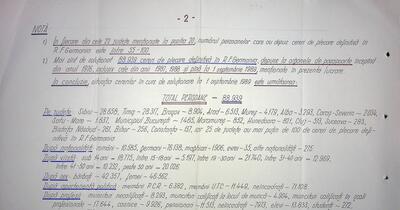 - 2 -
NOTĂ
În fiecare din cele 21 județe menționate la punctul 20, numărul persoanelor care au depus cereri de plecare definitivă în
R.F. Germania este între 35 - 100.
Mai sînt de soluționat 88.939 cereri de plecare definitivă în R.F. Germania, depuse la organele de pașapoarte începînd
din anul 1976, inclusiv cele din anii 1987, 1988 și pînă la 1 septembrie 1989, menționate în prezenta lucrare
În concluzie, situația cererilor în curs de soluționare la 1 septembrie 1989 este următoarea:
TOTAL PERSOANE - 88.939
De județe: Sibiu - 28.658, Timiș - 28.317, Brașov - 8.904, Arad - 6.513, Mureș - 4.179, Alba - 3.293, Caraș-Severin - 2.034,
Satu-Mare - 1.617, Municipiul București - 1.465, Maramureș - 832, Hunedoara - 601, Cluj - 513, Suceava - 283,
Bistrița Năsăud - 261, Bihor - 256, Constanța - 137, iar 25 de județe au mai puțin de 100 de cereri de plecare defi-
nitivă în R.F. Germania
După naționalitate: români - 10.985, germani - 75.138, maghiari - 1.906, evrei - 35, alte naționalități - 275.
După vîrstă: sub 14 ani - 18.775, între 15-18 ani - 5.917, între 19-30 ani - 21.740, între 31-40 ani - 12.969,
între 41-50 ani - 10.232, peste 50 ani - 20.026.
După sex: bărbați - 42.357, femei - 46.562.
După apartenență politică: membri P.C.R. - 6.382, membri U.T.C. - 11.449, neîncadrați - 71.108.
După profesie: muncitor necalificat - 8.265, muncitor calificat la locul de muncă - 4.904, muncitor calificat în școli
profesionale - 17.644, casnice - 9.926, pensionari - 11.513, neîncadrați - 7.913, elevi - 13.635, studenți - 232,